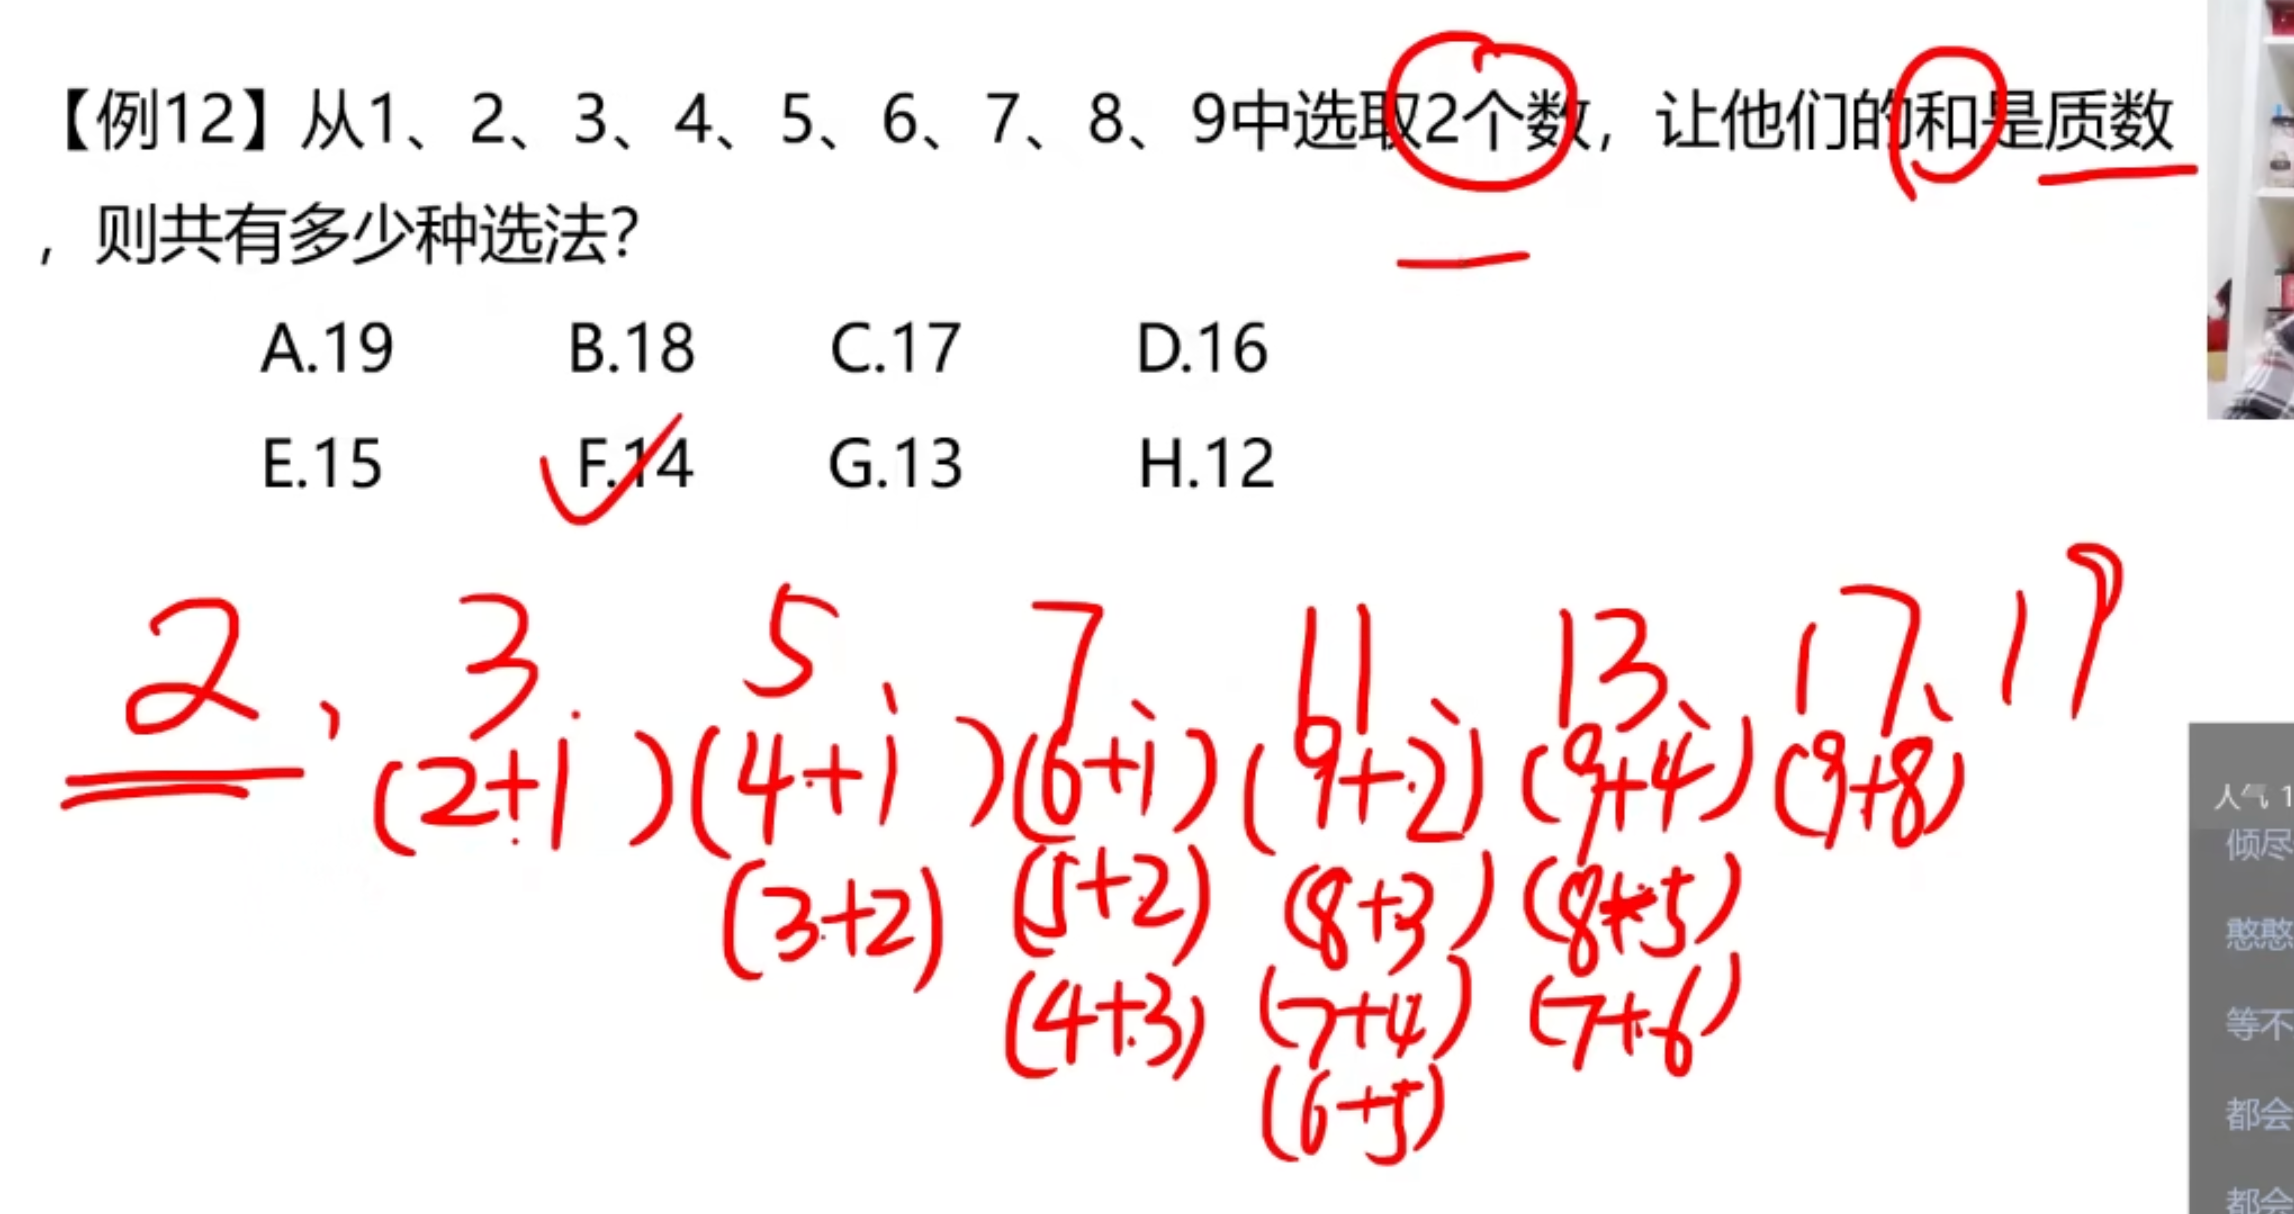 【例12】从1、2、3、4、5、6、7、8、9中选取2个数，让他们的和是质数
，则共有多少种选法？
A.19 B.18 C.17 D.16
E.15 F.14 G.13 H.12
2、3 5、7、11、13、17、19
(2+1)(4+1)(6+1)(9+2)(9+4)(9+8)
(3+2)(5+2)(8+3)(8+5)
(4+3)(7+4)(7+6)
(6+5)
人气 1
倾尽
憨憨
等不
都会
都会